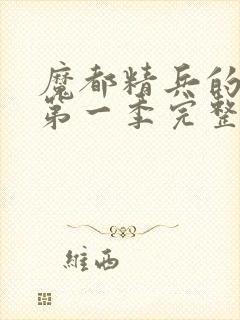 魔都精兵的
第一季完整
維西